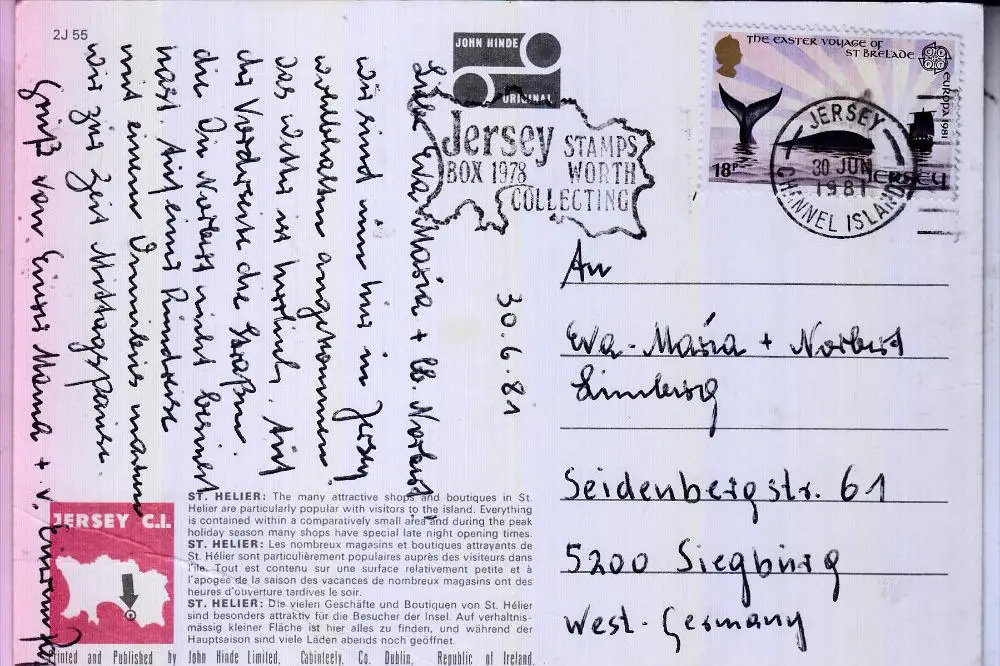 2J 55
JOHN HINDE
ORIGINAL
Jersey STAMPS
BOX 1978 WORTH
COLLECTING
THE EASTER VOYAGE OF
ST BRELADE
EUROPA 1981
18P JERSEY
JERSEY
30 JUN
1981
CHANNEL ISLANDS
30.6.81
Liebe Eva Maria + lb. Norbert
wir sind nun hier in Jersey
wohlbehalten angekommen.
Das Wetter ist herrlich. Auf
der Vorderseite die Straßen
die Du Norbert nicht bereist
hast. Auf einer Rundreise
mit einem Omnibus machen
wir zur Zeit Mittagspause.
Gruß von Eurer Mama + v. Eurem
An
Eva-Maria + Norbert
Limberg
Seidenbergstr. 61
5200 Siegburg
West-Germany
JERSEY C.I.
ST. HELIER: The many attractive shops and boutiques in St.
Helier are particularly popular with visitors to the island. Everything
is contained within a comparatively small area and during the peak
holiday season many shops have special late night opening times.
ST. HELIER: Les nombreux magasins et boutiques attrayants de
St. Hélier sont particulièrement populaires auprès des visiteurs dans
l'île. Tout est contenu sur une surface relativement petite et à
l'apogée de la saison des vacances de nombreux magasins ont des
heures d'ouverture tardives le soir.
ST. HELIER: Die vielen Geschäfte und Boutiquen von St. Hélier
sind besonders attraktiv für die Besucher der Insel. Auf verhältnis-
mässig kleiner Fläche ist hier alles zu finden, und während der
Hauptsaison sind viele Läden abends noch geöffnet.
Printed and Published by John Hinde Limited, Cabinteely, Co. Dublin, Republic of Ireland.